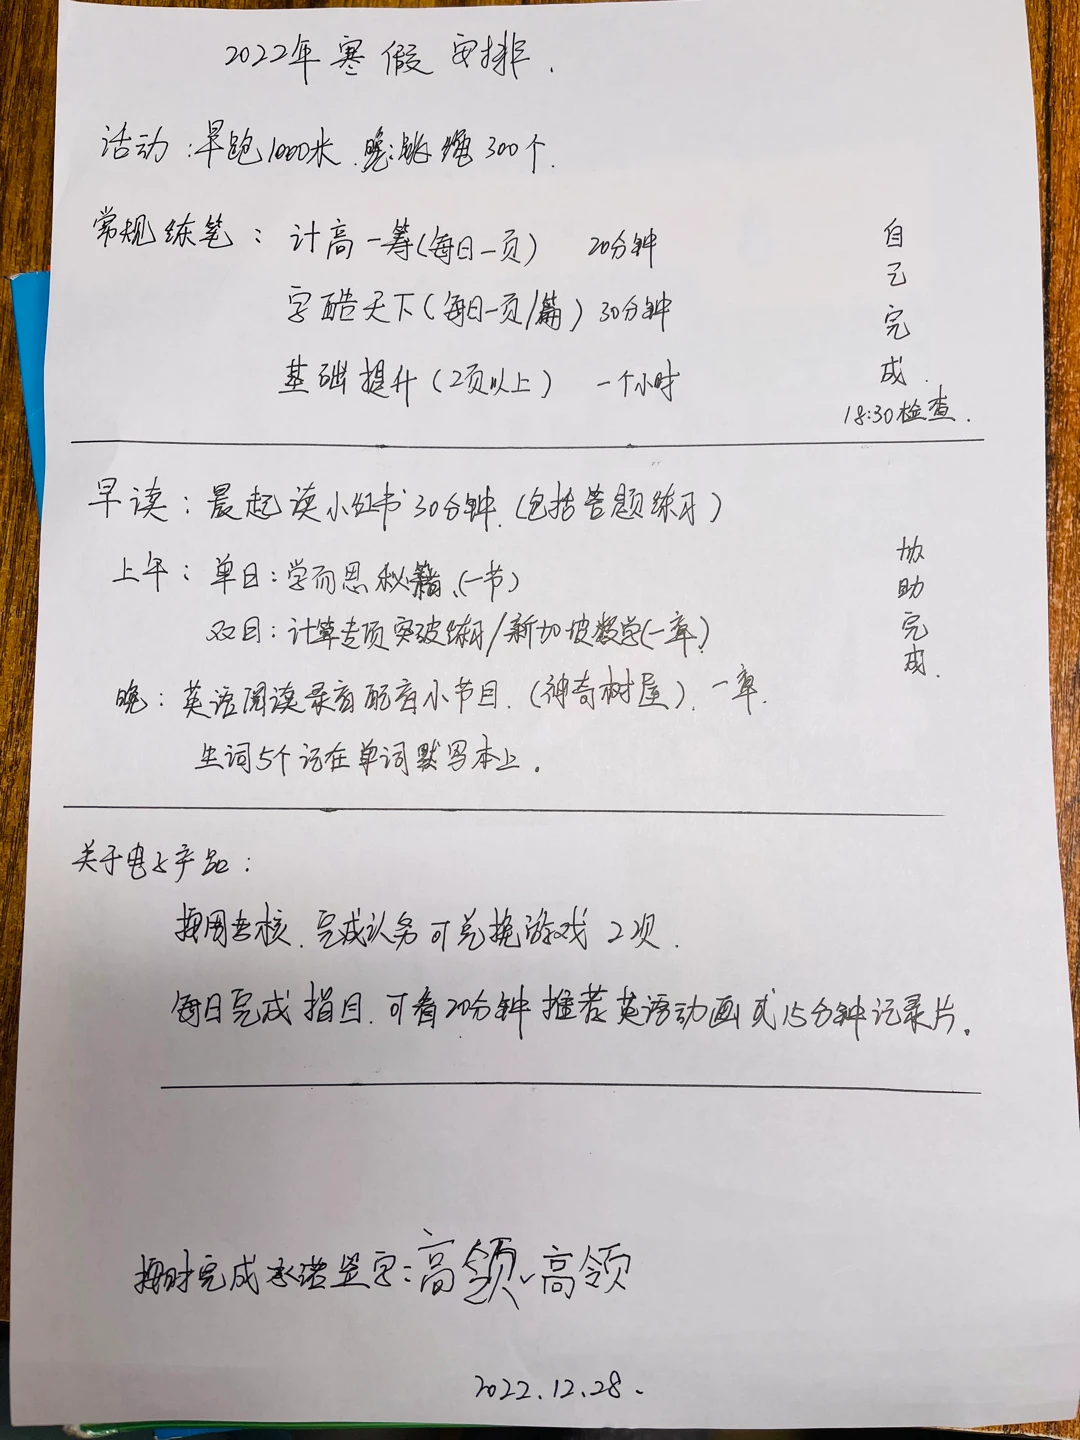 2022年寒假安排.
活动:早跑1000米.晚:跳绳300个.
常规练笔:计高一筹(每日一页) 20分钟
字酷天下(每日一页/篇) 30分钟
基础提升(2页以上) 一个小时
自己完成.
18:30检查.
早读:晨起读小红书30分钟.(包括答题练习)
上午:单日:学而思秘籍.(一节)
双日:计算专项突破练习/新加坡数学(一章)
晚:英语阅读录音配音小节目.(神奇树屋).一章.
生词5个记在单词默写本上.
协助完成.
关于电子产品:
按周考核.完成认务可兑换游戏2次.
每日完成指目.可看20分钟推荐英语动画或15分钟记录片。
按时完成承诺签字:高领、高领
2022.12.28.